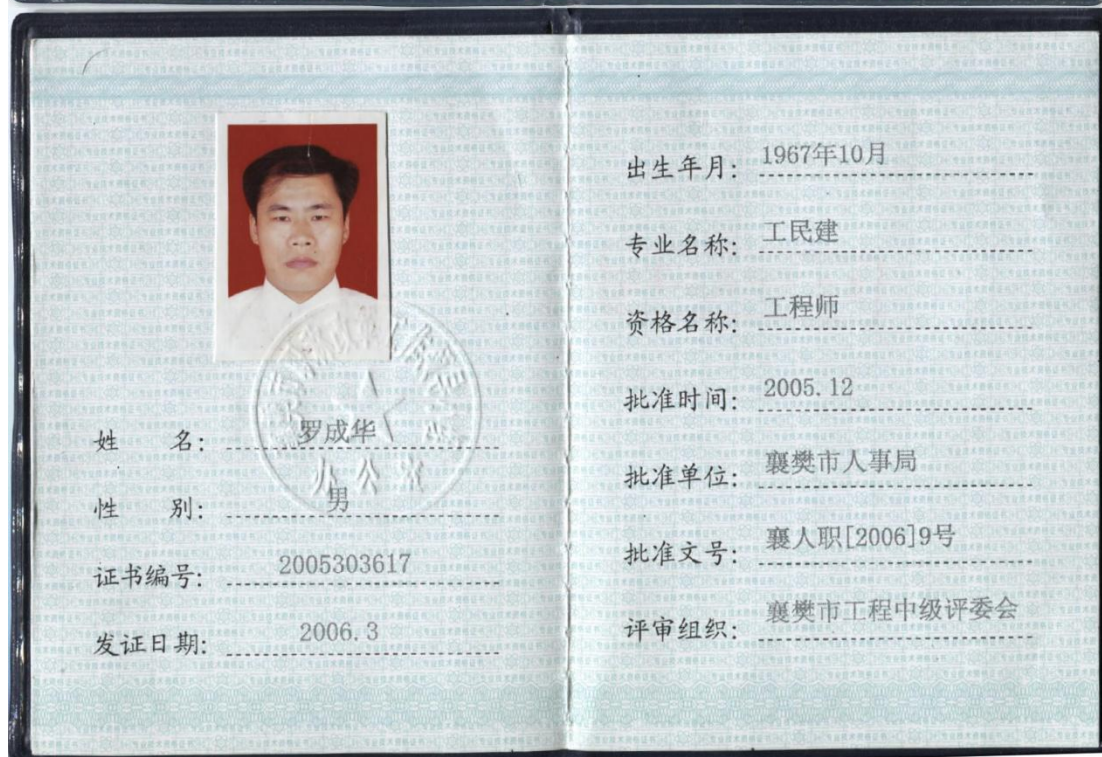 姓 名: 罗成华
性 别: 男
证书编号: 2005303617
发证日期: 2006.3
出生年月: 1967年10月
专业名称: 工民建
资格名称: 工程师
批准时间: 2005.12
批准单位: 襄樊市人事局
批准文号: 襄人职[2006]9号
评审组织: 襄樊市工程中级评委会
办公室